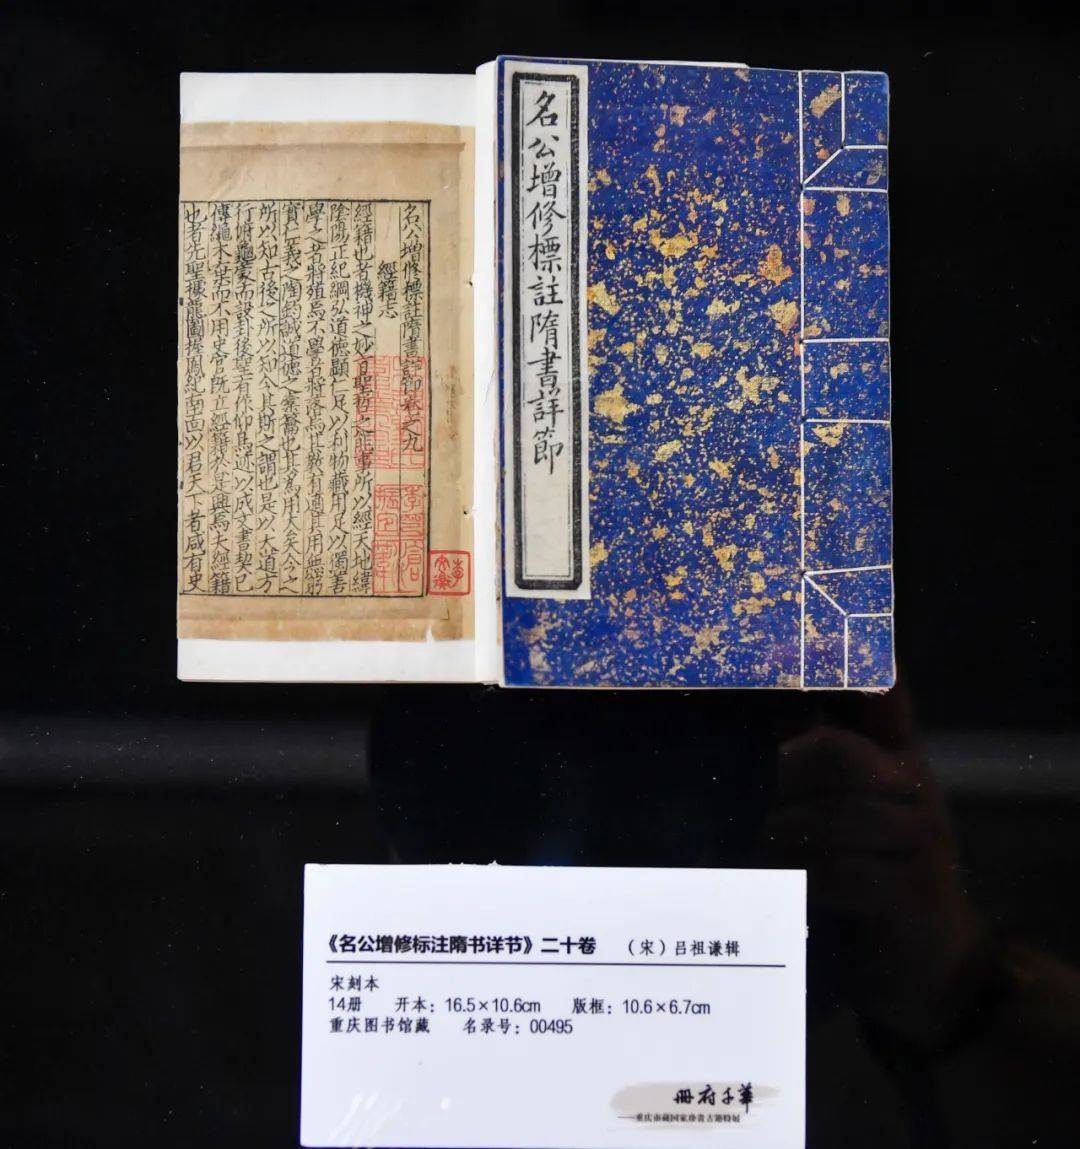 名公增修標註隋書詳節
名公增修標註隋書詳節卷之九
經籍志
經籍也者機神之妙旨聖哲之能事所以經天地緯
陰陽正紀綱弘道德顯仁足以利物藏用足以獨善
學之者將殖焉不學者將落焉其教有適其用無窮
實仁義之陶鈞誠道德之橐籥也其為用大矣今之
所以知古後之所以知今其斯之謂也是以大道方
行俯龜象而設卦後聖有作仰鳥迹以成文書契已
傳繩木棄而不用史官既立經籍於是興焉夫經籍
也者先聖據龍圖握鳳紀南面以君天下者咸有史
《名公增修标注隋书详节》二十卷 （宋）吕祖谦辑
宋刻本
14册 开本：16.5×10.6cm 版框：10.6×6.7cm
重庆图书馆藏 名录号：00495
冊府千華
——重庆市藏国家珍贵古籍特展